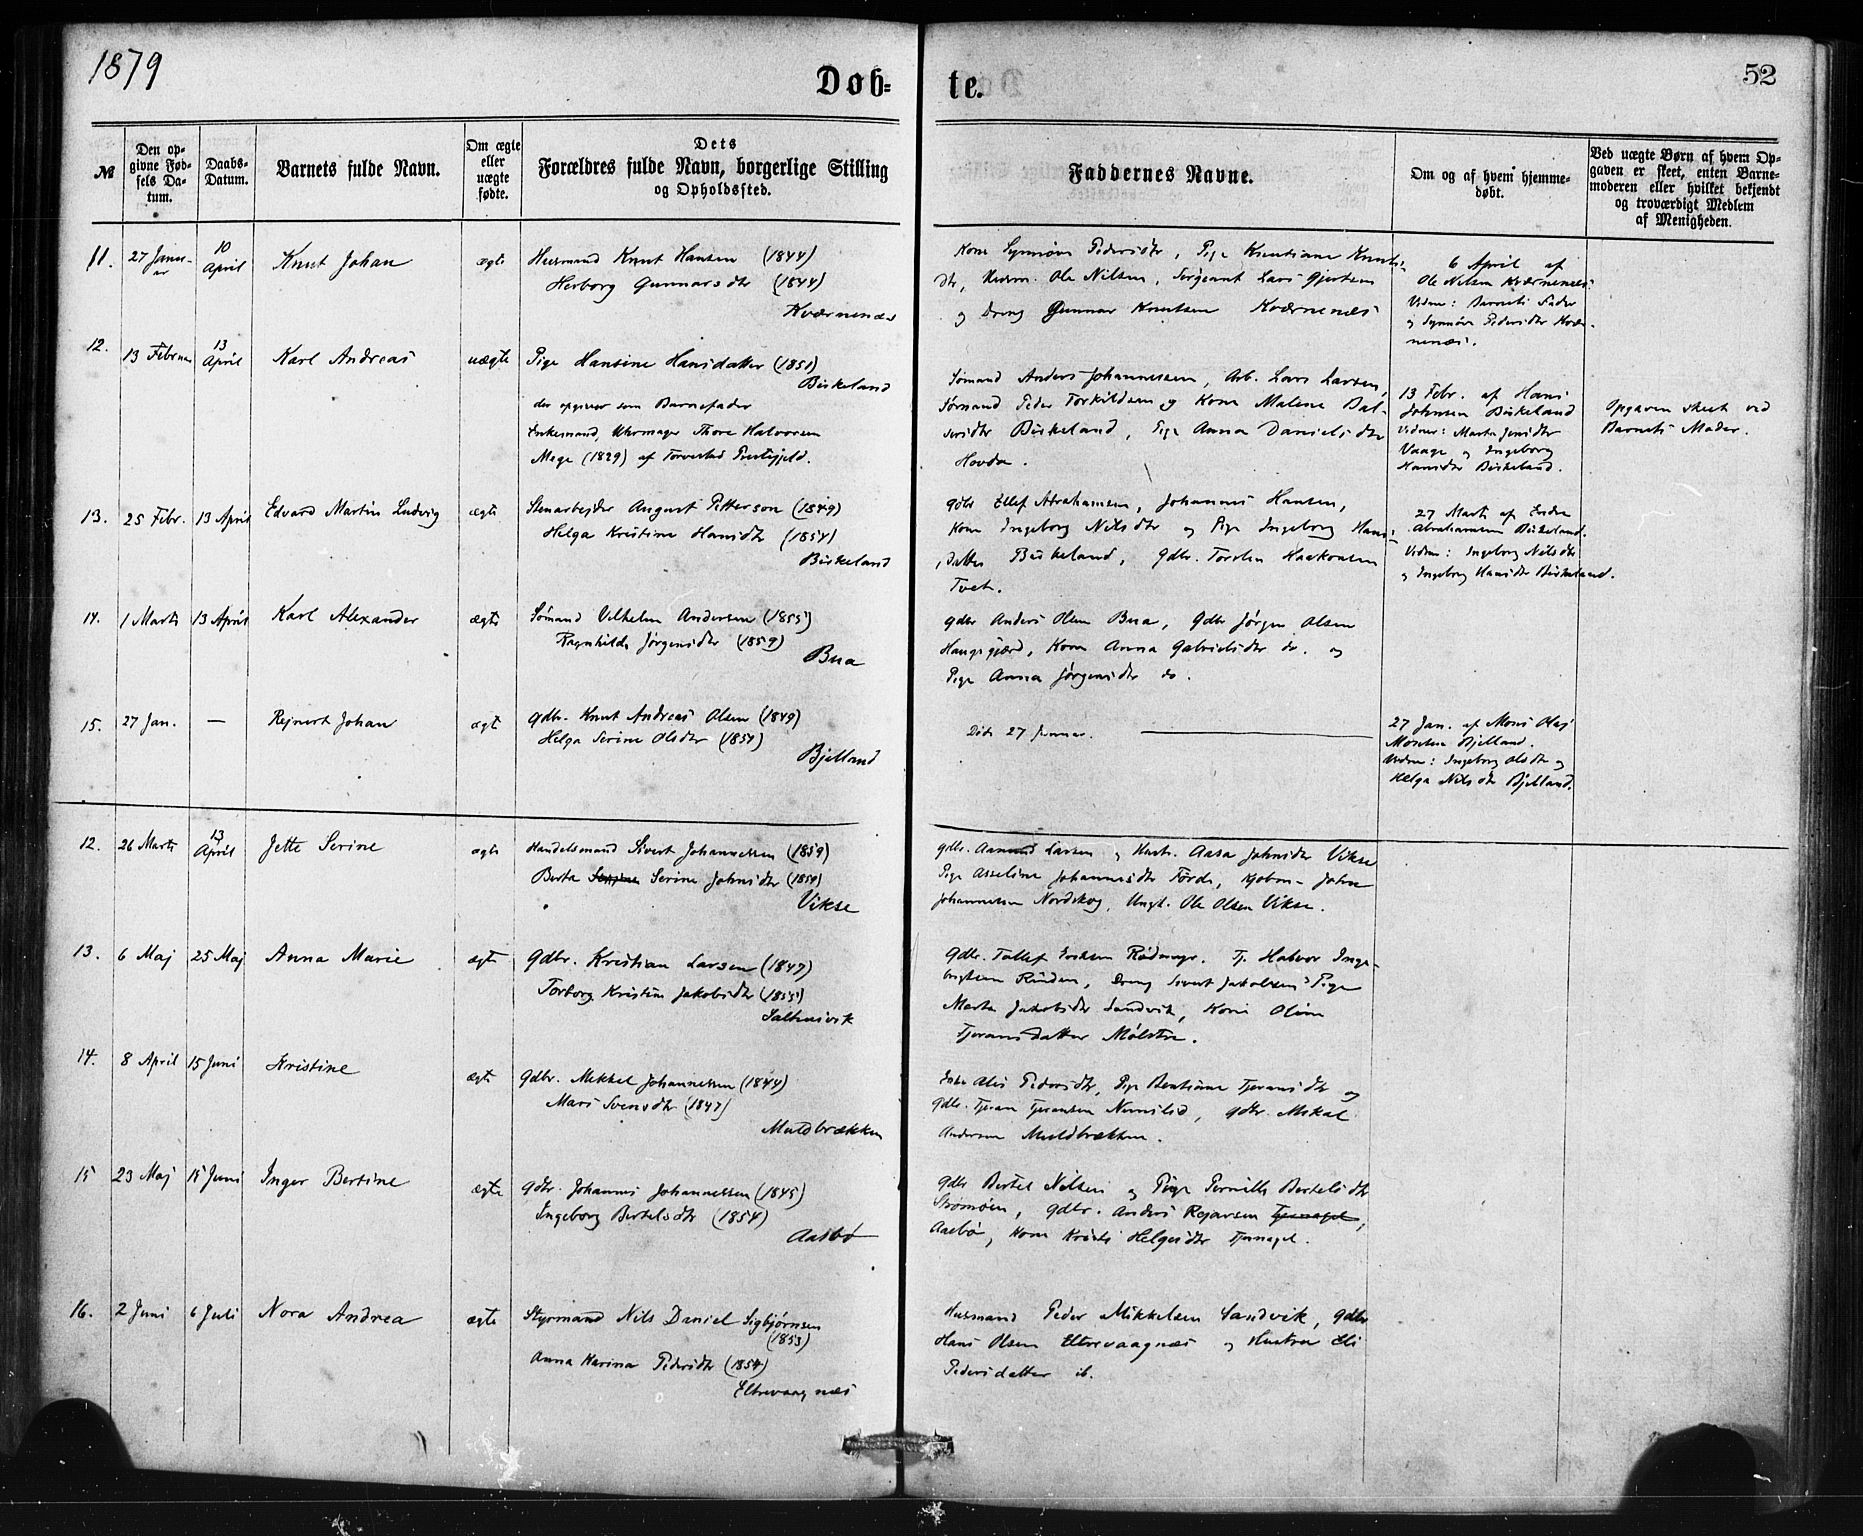 1879
Döb-
te.
52
№
Den op-
givne Fød-
sels Da-
tum.
Daabs-
Datum.
Barnets fulde Navn.
Om ægte
eller
uægte
fødte.
Dets
Forældres fulde Navn, borgerlige Stilling
og Opholdssted.
Faddernes Navne.
Om og af hvem hjemme-
døbt.
Ved uægte Børn af hvem Op-
gaven er skeet, enten Barne-
moderen eller hvilket bekjendt
og troværdigt Medlem
af Menigheden.
11.
27 Janu-
ar
10
April
Knut Johan
ægte
Husmand Knut Hansen (1844)
Herborg Gunnarsdtr (1844)
Kværnenæs
Kone Synnøve Pedersdtr, Pige Knutsdtr
dtr, Husm. Ole Nilsen, Sergeant Lars Gjertsen
og Dreng Gunnar Knutsen Kværnenæs
6 April af
Ole Nilsen Kværnenæs.
Vidner: Barnets Fader
og Synnøve Pedersdtr Kvær-
nenæs.
12.
13 Februar
13
April
Karl Andreas
uægte
Pige Hansine Hansdatter (1851)
Birkeland
der opgiver som Barnefader
Enkemand, Uhrmager Thore Halvorsen
Mage (1829) af Torvestad Prestegjeld.
Sømand Anders Johannessen, Arb. Lars Larsen,
Sømand Peder Torkildsen og Kone Malene Bal-
sersdtr Birkeland, Pige Anna Danielsdtr
Hovda.
13 Febr. af Hans
Johnsen Birkeland
Vidner: Marta Jensdtr
Vaage og Ingeborg
Hansdtr Birkeland.
Opgaven skeet ved
Barnets Moder.
13.
25 Febr.
13 April
Edvard Martin Ludvig
ægte
Stenarbejder August Petterson (1849)
Helga Kristine Hansdtr (1854)
Birkeland
Gdbr Ellef Abrahamsen, Johannes Hansen,
Kone Ingeborg Nilsdtr og Pige Ingeborg Hans-
datter Birkeland, Gdbr. Torsten Haakonsen
Tvet.
27 Marts af Endre
Abrahamsen Birkeland.
Vidner: Ingeborg Nilsdtr
og Ingeborg Hansdtr Birkeland.
14.
1 Marts
13 April
Karl Alexander
ægte
Sømand Vilhelm Andersen (1855)
Ragnhilde Jørgensdtr (1859)
Bua
Gdbr Anders Olsen Bua, Gdbr Jørgen Olsen
Haugsgjærd, Kone Anna Gabrielsdtr do. og
Pige Anna Jørgensdtr do.
15.
27 Jan.
—
Rejnert Johan
ægte
Gdbr. Knut Andreas Olsen (1849)
Helga Serine Olsdtr (1851)
Bjelland
Død 27 Januar.
27 Jan. af Mons Olaj
Monsen Bjelland.
Vidner: Ingeborg Olsdtr og
Helga Nilsdtr Bjelland.
12.
26 Marts
13
April
Jette Serine
ægte
Handelsmand Sivert Johannessen (1859)
Berta Serine Johnsdtr (1850)
Vikse
Gdbr. Aamund Larsen og Hust. Aasa Johnsdtr Vikse
Pige Asseline Johannesdtr Førde, Kjøbm. John
Johannessen Nordskog, Ungk. Ole Olsen Vikse.
13.
6 Maj
25 Maj
Anna Marie
ægte
Gdbr. Kristian Larsen (1847)
Torborg Kristine Jakobsdtr (1855)
Saltnesvik
Gdbr. Tollef Eriksen Rødmyr. Tj. Halvor Inge-
brigtsen, Dreng Sivert Jakobsen, Pige
Marta Jakobsdtr Sandvik, Kone Oline
Tjeransdatter Mølstre.
14.
8 April
15 Juni
Kristine
ægte
Gdbr. Mikkel Johannessen (1844)
Mari Svensdtr (1847)
Muldbrækken
Pedersdtr, Pige Bentsine Tjeransdtr og
Gdbr. Tjeran Tjeransen, Gdbr. Mikal
Andersen Muldbrækken.
15
23 Maj
15 Juni
Inger Bertine
ægte
Gdbr. Johannes Johannessen (1845)
Ingeborg Bertelsdtr (1854)
Aasbø
Gdbr Bertel Nilsen og Pige Pernille Bertelsdtr
Strømøen, Gdbr. Anders Rejarsen Tjernagel,
Aasbø, Kone Kristi Helgesdtr Tjernagel.
16.
2 Juni
6 Juli
Nora Andrea
ægte
Styrmand Nils Daniel Sigbjørnsen
(1853)
Anna Karina Pedersdtr (1854)
Eltrevaagnæs
Husmand Peder Mikkelsen Sandvik, Gdbr
Hans Olsen Eltrevaagnæs og Hustru Eli
Pedersdatter ib.